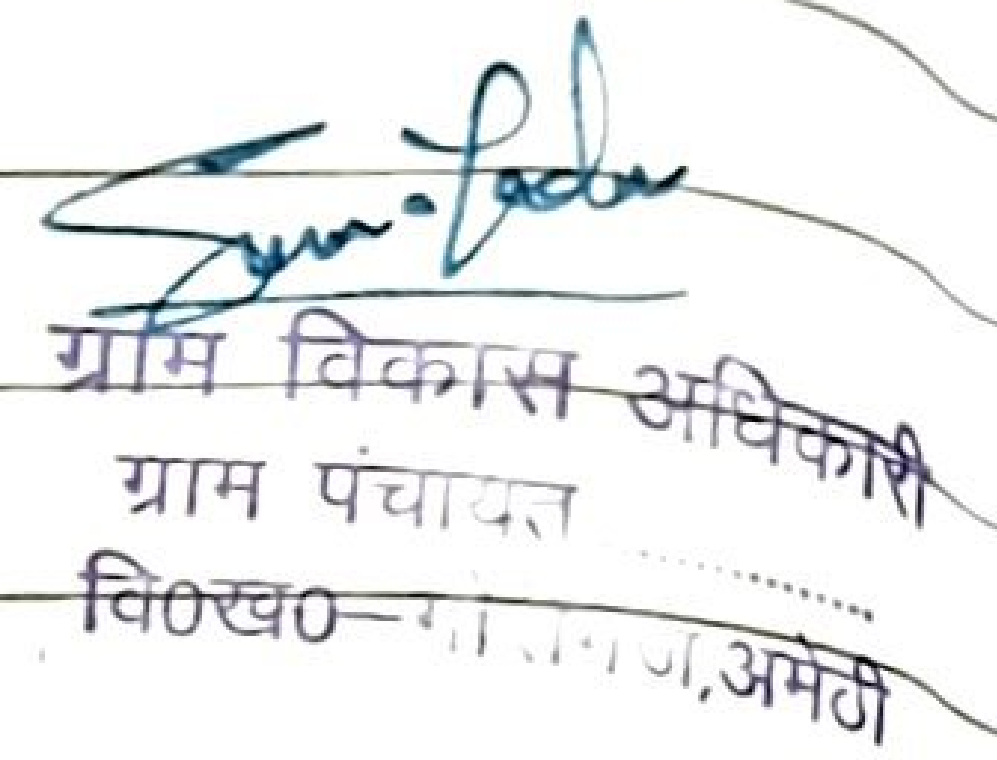 ग्राम विकास अधिकारी
ग्राम पंचायत ..............
वि०ख०– ,अमेठी